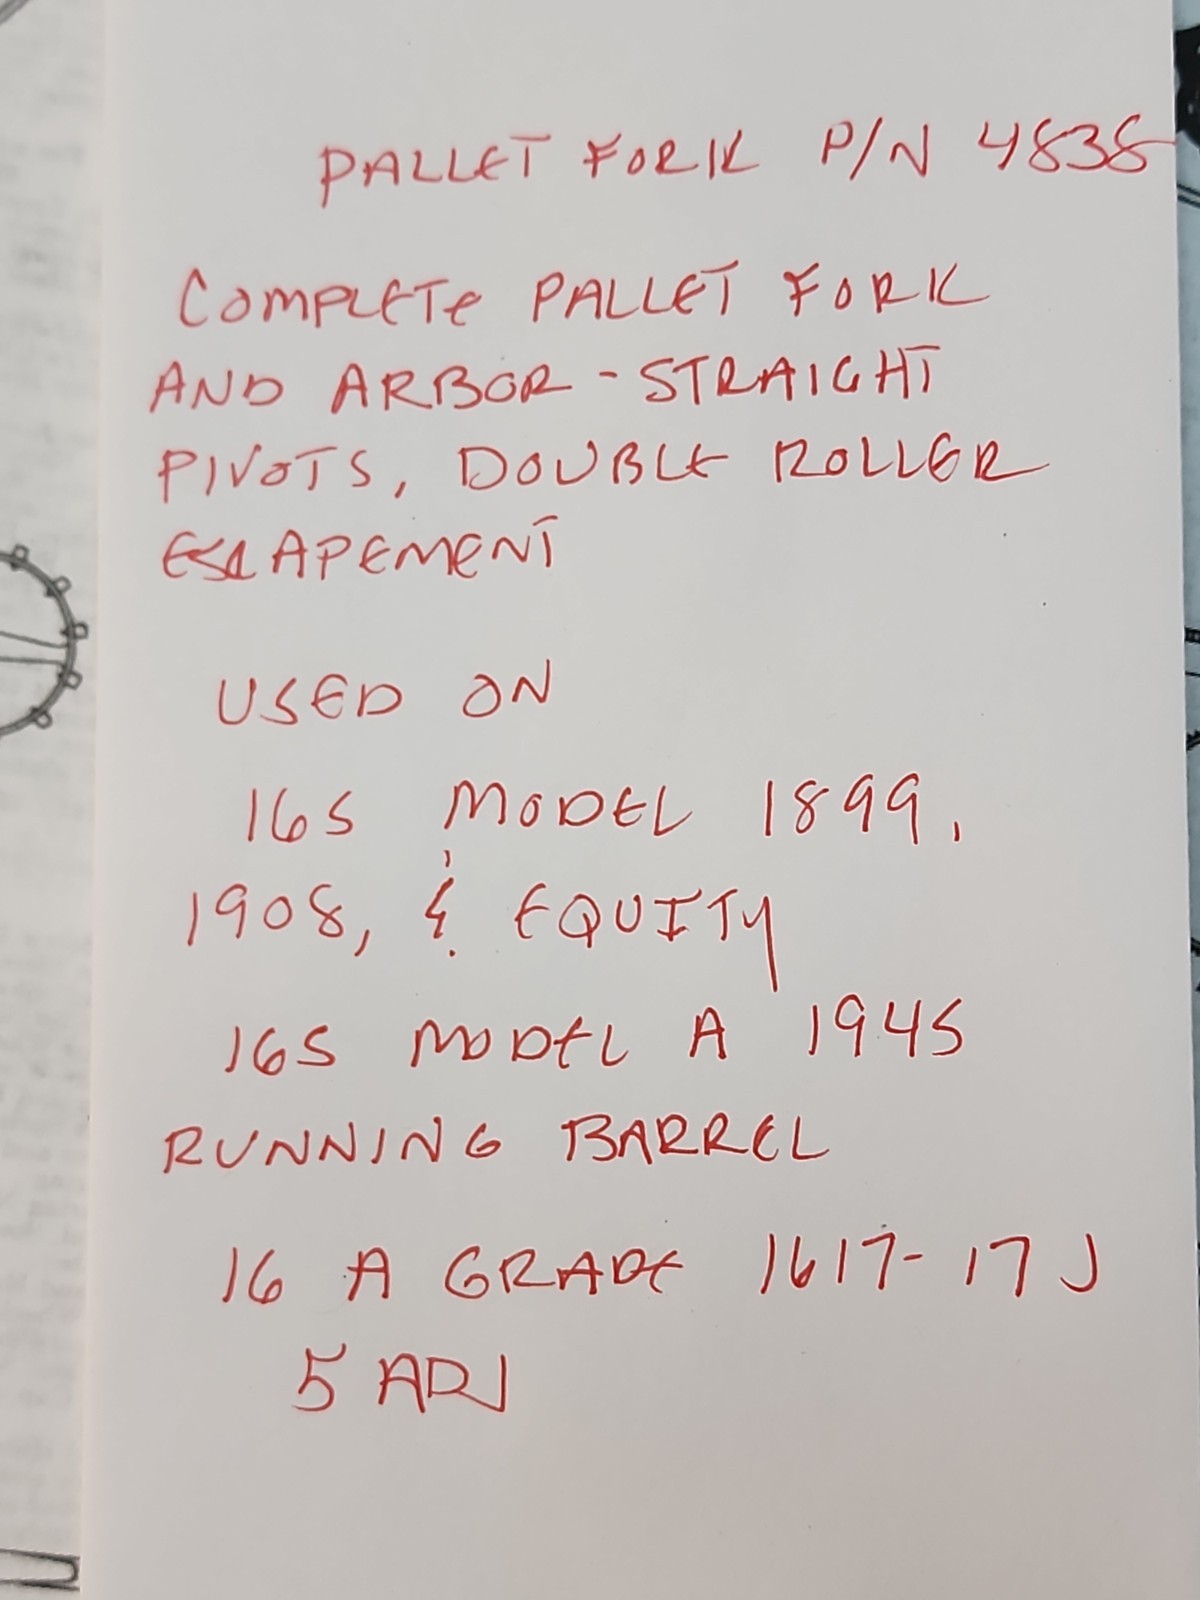 PALLET FORK P/N 4838
COMPLETE PALLET FORK
AND ARBOR - STRAIGHT
PIVOTS, DOUBLE ROLLER
ESCAPEMENT
USED ON
16S MODEL 1899,
1908, & EQUITY
16S MODEL A 1945
RUNNING BARREL
16 A GRADE 1617- 17 J
5 ADJ